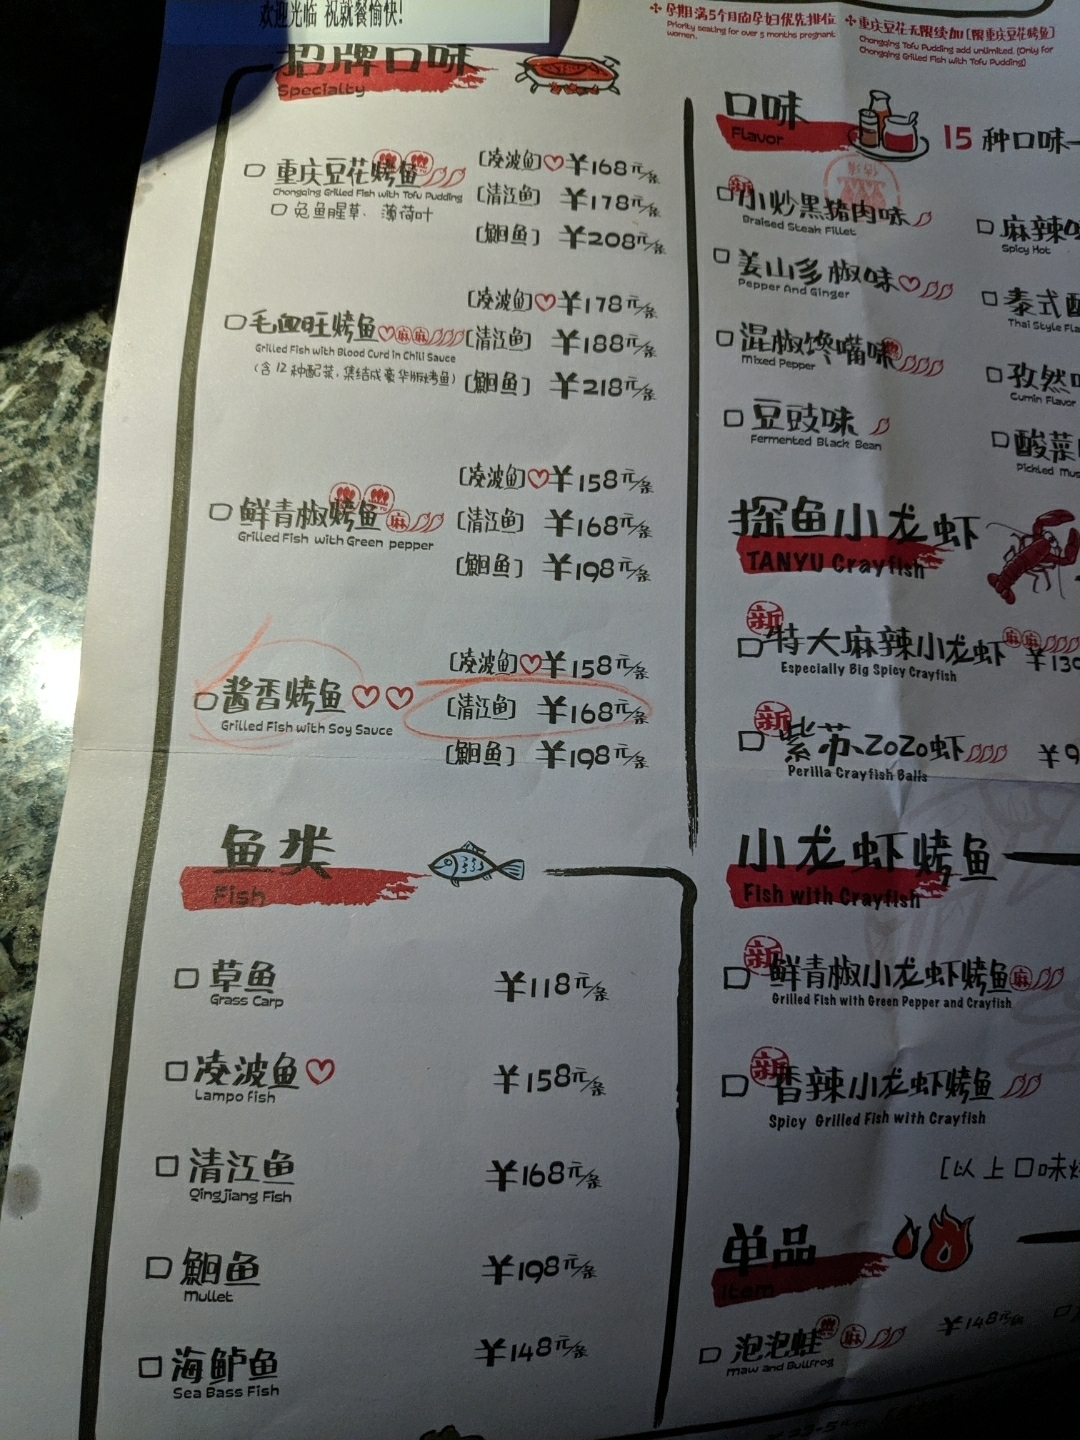 欢迎光临 祝就餐愉快!
招牌口味
Specialty
重庆豆花烤鱼
Chongqing Grilled Fish with Tofu Pudding
兔鱼腥草、薄荷叶
[凌波鱼] ¥168元/条
[清江鱼] ¥178元/条
[鮰鱼] ¥208元/条
毛血旺烤鱼 麻 麻
Grilled Fish with Blood Curd in Chili Sauce
(含12种配菜,集结成豪华版烤鱼)
[凌波鱼] ¥178元/条
[清江鱼] ¥188元/条
[鮰鱼] ¥218元/条
鲜青椒烤鱼 麻
Grilled Fish with Green pepper
[凌波鱼] ¥158元/条
[清江鱼] ¥168元/条
[鮰鱼] ¥198元/条
酱香烤鱼
Grilled Fish with Soy Sauce
[凌波鱼] ¥158元/条
[清江鱼] ¥168元/条
[鮰鱼] ¥198元/条
鱼类
Fish
草鱼 ¥118元/条
Grass Carp
凌波鱼 ¥158元/条
Lampo fish
清江鱼 ¥168元/条
Qingjiang Fish
鮰鱼 ¥198元/条
Mullet
海鲈鱼 ¥148元/条
Sea Bass Fish
孕期满5个月的孕妇优先排位
Priority seating for over 5 months pregnant
women.
重庆豆花无限续加[限重庆豆花烤鱼]
Chongqing Tofu Pudding add unlimited. (Only for
Chongqing Grilled Fish with Tofu Pudding)
口味
Flavor
15 种口味
新
小炒黑猪肉味
Braised Steak Fillet
姜山多椒味
Pepper And Ginger
混椒馋嘴味
Mixed Pepper
豆豉味
Fermented Black Bean
麻辣
Spicy Hot
泰式
Thai Style
孜然
Cumin Flavor
酸菜
Pickled
探鱼小龙虾
TANYU Crayfish
新
特大麻辣小龙虾 麻 麻
Especially Big Spicy Crayfish
新
紫苏ZOZO虾
Perilla Crayfish Balls
小龙虾烤鱼
Fish with Crayfish
新
鲜青椒小龙虾烤鱼 麻
Grilled Fish with Green Pepper and Crayfish
新
香辣小龙虾烤鱼
Spicy Grilled Fish with Crayfish
[以上口味
单品
Item
泡泡蛙 麻 ¥148元
Maw and Bullfrog